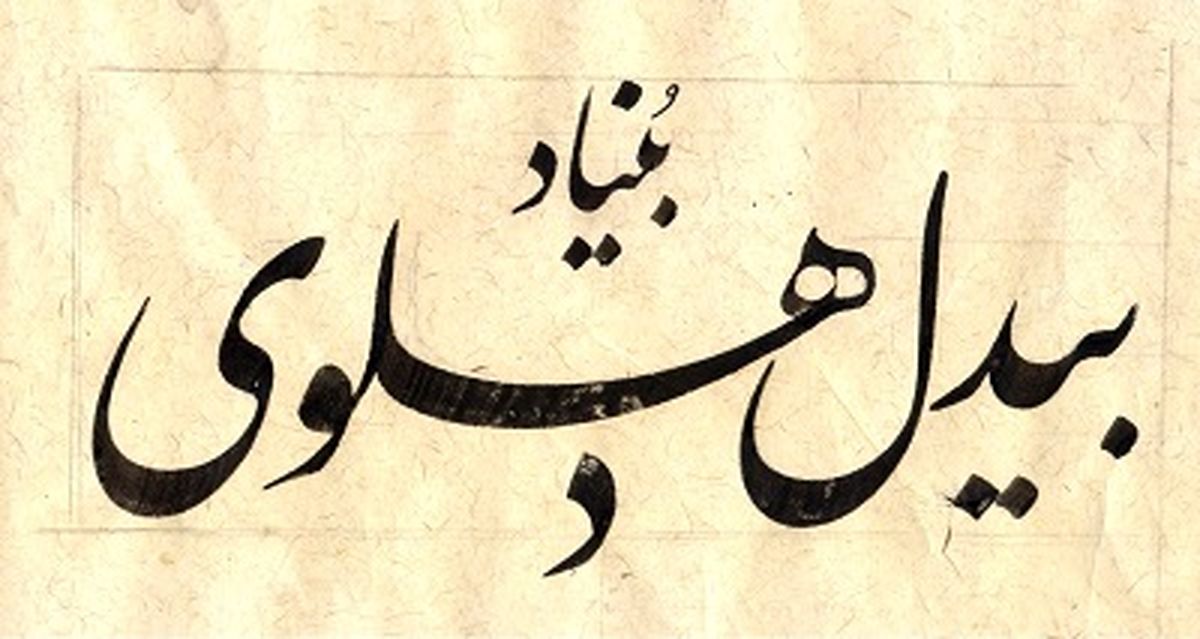 بُنیاد
بیدل دهلوی